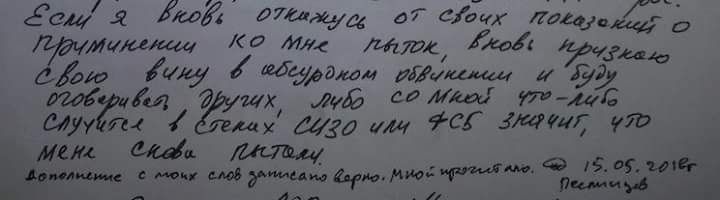 Если я вновь откажусь от своих показаний о
приминении ко мне пыток, вновь признаю
свою вину в абсурдном обвинении и буду
оговаривать других, либо со мной что-либо
случится в стенах СИЗО или ФСБ значит, что
меня снова пытали.
Дополнение с моих слов записано верно. Мной прочитано. 15.05.2018г